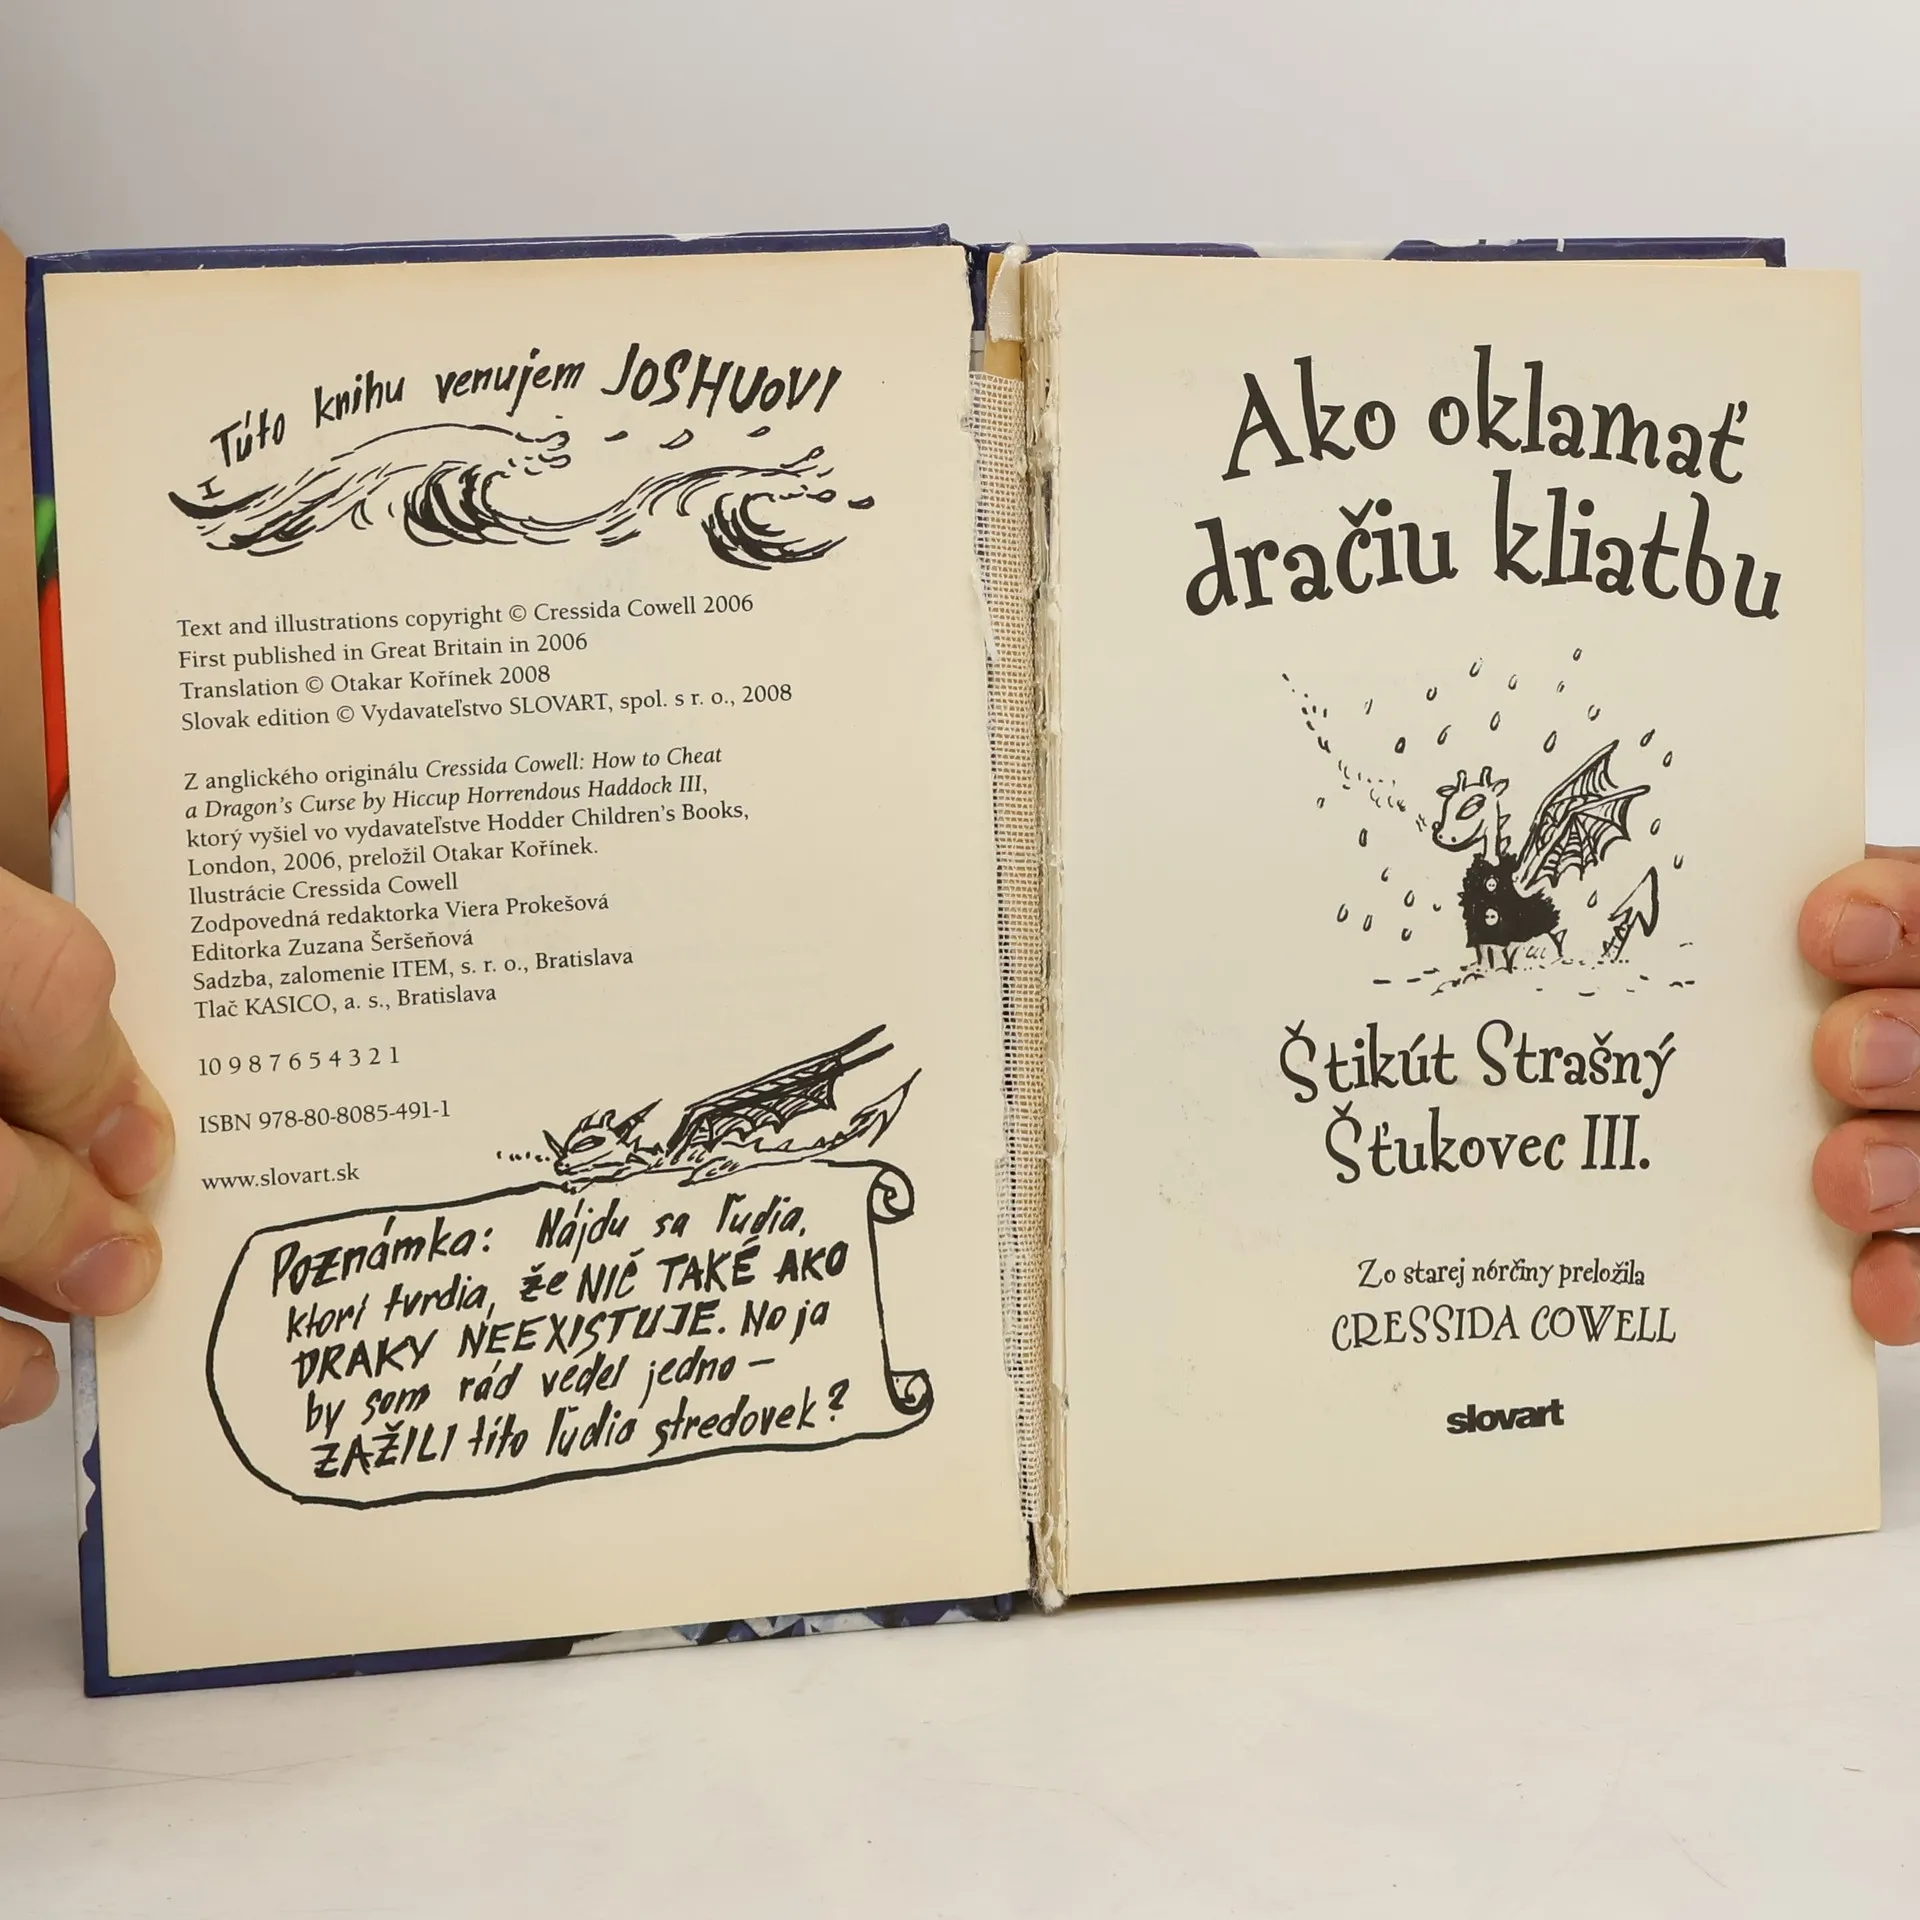 Túto knihu venujem JOSHUOVI
Text and illustrations copyright © Cressida Cowell 2006
First published in Great Britain in 2006
Translation © Otakar Kořínek 2008
Slovak edition © Vydavateľstvo SLOVART, spol. s r. o., 2008
Z anglického originálu Cressida Cowell: How to Cheat
a Dragon's Curse by Hiccup Horrendous Haddock III,
ktorý vyšiel vo vydavateľstve Hodder Children's Books,
London, 2006, preložil Otakar Kořínek.
Ilustrácie Cressida Cowell
Zodpovedná redaktorka Viera Prokešová
Editorka Zuzana Šeršeňová
Sadzba, zalomenie ITEM, s. r. o., Bratislava
Tlač KASICO, a. s., Bratislava
10 9 8 7 6 5 4 3 2 1
ISBN 978-80-8085-491-1
www.slovart.sk
Poznámka: Nájdu sa ľudia,
ktorí tvrdia, že NIČ TAKÉ AKO
DRAKY NEEXISTUJE. No ja
by som rád vedel jedno –
ZAŽILI títo ľudia stredovek?
Ako oklamať
dračiu kliatbu
Štikút Strašný
Šťukovec III.
Zo starej nórčiny preložila
CRESSIDA COWELL
slovart